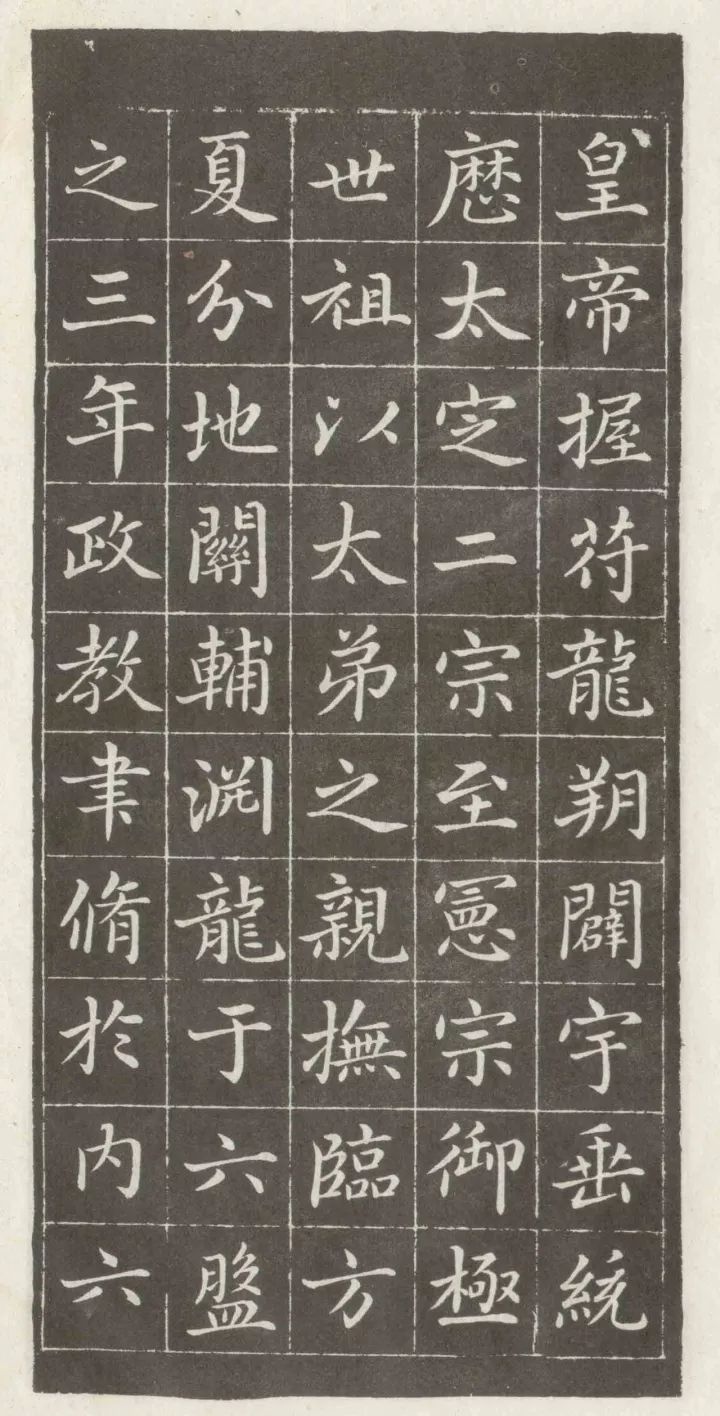 皇帝握符龍朔闢宇垂統
歷太定二宗至憲宗御極
世祖以太弟之親撫臨方
夏分地關輔渊龍于六盤
之三年政教聿脩於内六